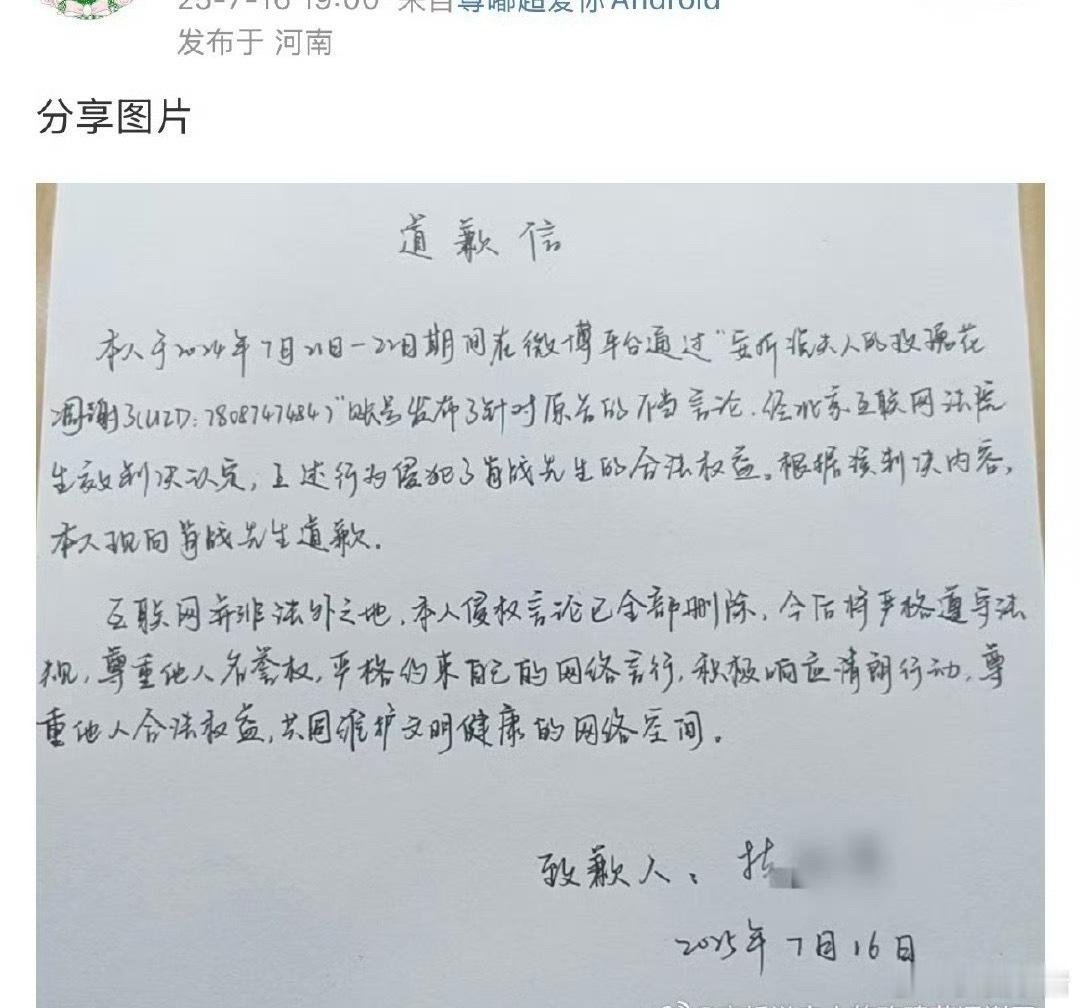 25-7-16 19:00 来自尊嘟超爱你Android
发布于 河南
分享图片
道歉信
本人于2024年7月21日-22日期间在微博平台通过"安听涯夫人的玫瑰花
凋谢了(UID:7808747484)"账号发布了针对原告的不当言论,经北京互联网法院
生效判决认定,上述行为侵犯了肖战先生的合法权益。根据该判决内容,
本人现向肖战先生道歉.
互联网并非法外之地,本人侵权言论已全部删除,今后将严格遵守法
规,尊重他人名誉权,严格约束自己的网络言行,积极响应清朗行动,尊
重他人合法权益,共同维护文明健康的网络空间。
致歉人:
2025年7月16日